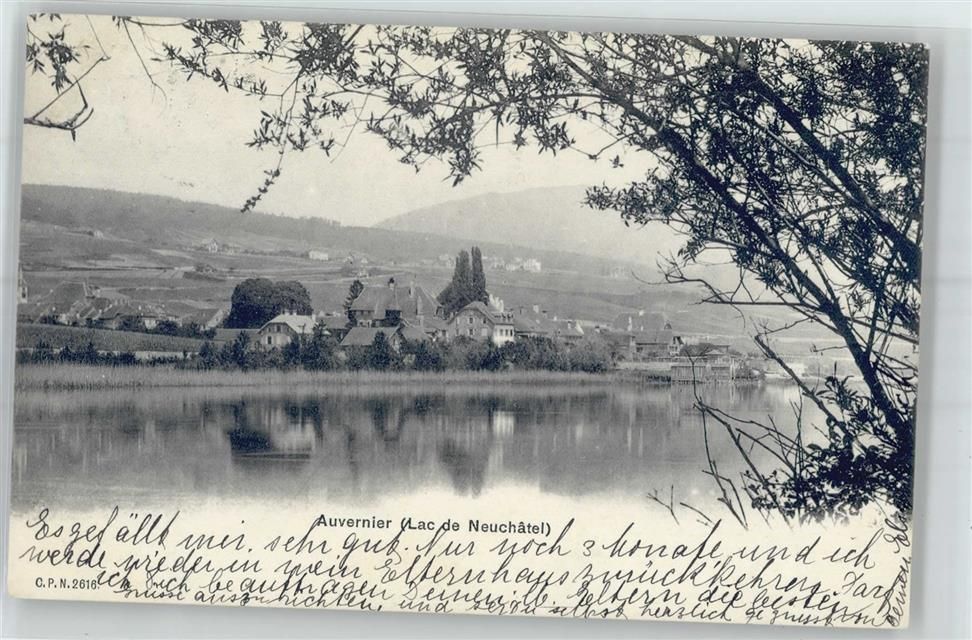 Auvernier (Lac de Neuchâtel)
Es gefällt mir sehr gut. Nur noch 3 Monate, und ich
werde wieder in mein Elternhaus zurückkehren. Darf
C.P.N. 2616.
ich dich beauftragen Deinen lb. Eltern die besten
Grüsse auszurichten, und sei selbst herzlich gegrüsst von